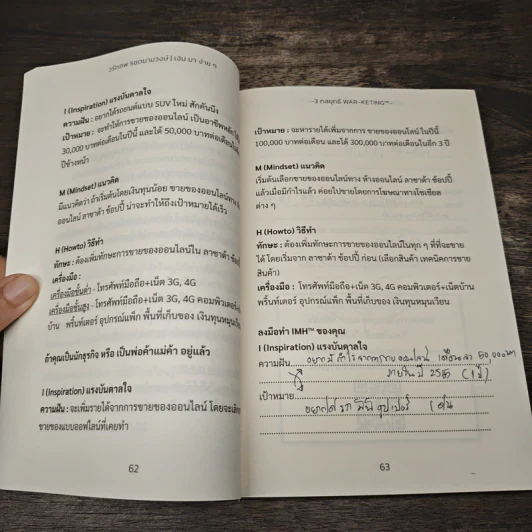 วรัทภพ รชตนามวงษ์ | เงิน มา ง่าย ๆ
I (Inspiration) แรงบันดาลใจ
ความฝัน : อยากได้รถยนต์แบบ SUV ใหม่ สักคันนึง
เป้าหมาย : จะทำให้การขายของออนไลน์ เป็นอาชีพหลัก
30,000 บาทต่อเดือนในปีนี้ และได้ 50,000 บาทต่อเดือนใน
ปีข้างหน้า
M (Mindset) แนวคิด
มีแนวคิดว่า ถ้าเริ่มต้นโดยเงินทุนน้อย ขายของออนไลน์ทาง
ออนไลน์ ลาซาด้า ช้อปปี้ น่าจะทำให้ถึงเป้าหมายได้เร็ว
H (Howto) วิธีทำ
ทักษะ : ต้องเพิ่มทักษะการขายของออนไลน์ใน ลาซาด้า ช้อปปี้
เครื่องมือ :
เครื่องมือขั้นต่ำ - โทรศัพท์มือถือ+เน็ต 3G, 4G
เครื่องมือขั้นสูง - โทรศัพท์มือถือ+เน็ต 3G, 4G คอมพิวเตอร์+เน็ต
บ้าน พริ้นท์เตอร์ อุปกรณ์แพ็ก พื้นที่เก็บของ เงินทุนหมุนเวียน
ถ้าคุณเป็นนักธุรกิจ หรือ เป็นพ่อค้าแม่ค้า อยู่แล้ว
I (Inspiration) แรงบันดาลใจ
ความฝัน : จะเพิ่มรายได้จากการขายของออนไลน์ โดยจะเลิก
ขายของแบบออฟไลน์ที่เคยทำ
62
-3 กลยุทธ์ WAR-KETING™-
เป้าหมาย : จะหารายได้เพิ่มจากการ ขายของออนไลน์ ในปีนี้
100,000 บาทต่อเดือน และได้ 300,000 บาทต่อเดือนในอีก 3 ปี
M (Mindset) แนวคิด
เริ่มต้นเลือกขายของออนไลน์ทาง ห้างออนไลน์ ลาซาด้า ช้อปปี้
แล้วเมื่อมีกำไรแล้ว ค่อยไปขายโดยการโฆษณาทางโซเชียล
ต่าง ๆ
H (Howto) วิธีทำ
ทักษะ : ต้องเพิ่มทักษะการขายของออนไลน์ในทุก ๆ ที่ที่จะขาย
ได้ โดยเริ่มจาก ลาซาด้า ช้อปปี้ ก่อน (เลือกสินค้า เทคนิคการขาย
สินค้า)
เครื่องมือ : โทรศัพท์มือถือ+เน็ต 3G, 4G คอมพิวเตอร์+เน็ตบ้าน
พริ้นท์เตอร์ อุปกรณ์แพ็ก พื้นที่เก็บของ เงินทุนหมุนเวียน
ลงมือทำ IMH™ ของคุณ
I (Inspiration) แรงบันดาลใจ
ความฝัน อยากมีกำไรจากการขายออนไลน์ เดือนละ 50,000
ภายในปี (1 ปี)
เป้าหมาย
อยากได้รถ
63